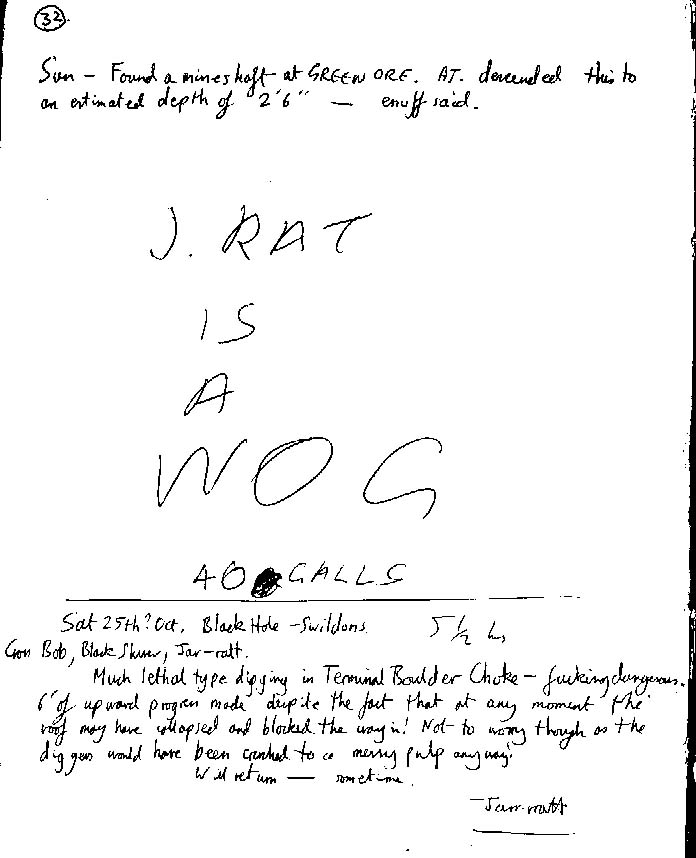 32
Sun - Found a mineshaft at GREEN ORE. AT. descended this to
an estimated depth of 2'6" — enuff said.
J. RAT
IS
A
WOG
40 GALLS
Sat 25th? Oct. Black Hole - Swildons. 5 1/2 hrs
Bob, Black Shiver, Jar-ratt.
Much lethal type digging in Terminal Boulder Choke - fucking dangerous.
6' of upward progress made despite the fact that at any moment the
roof may have collapsed and blocked the way in! Not to worry though as the
diggers would have been crushed to a messy pulp anyway!
Will return — sometime.
Jarr-ratt